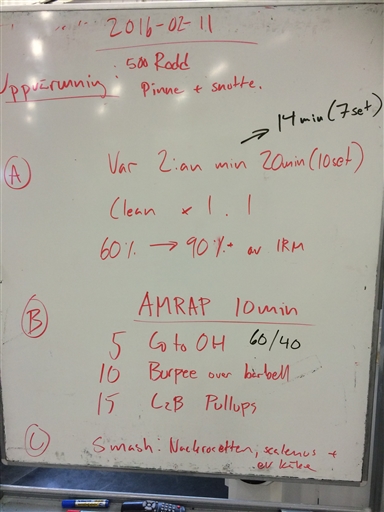 2016-02-11
500 Rodd
Uppvärmning:
Pinne + snotte.
14 min (7set)
A
Var 2:an min 20min (10set)
Clean x 1.1
60% → 90%+ av 1RM
B
AMRAP 10min
5 G to OH 60/40
10 Burpee over barbell
15 C2B Pullups
C
Smash: Nackrosetten, scalenus +